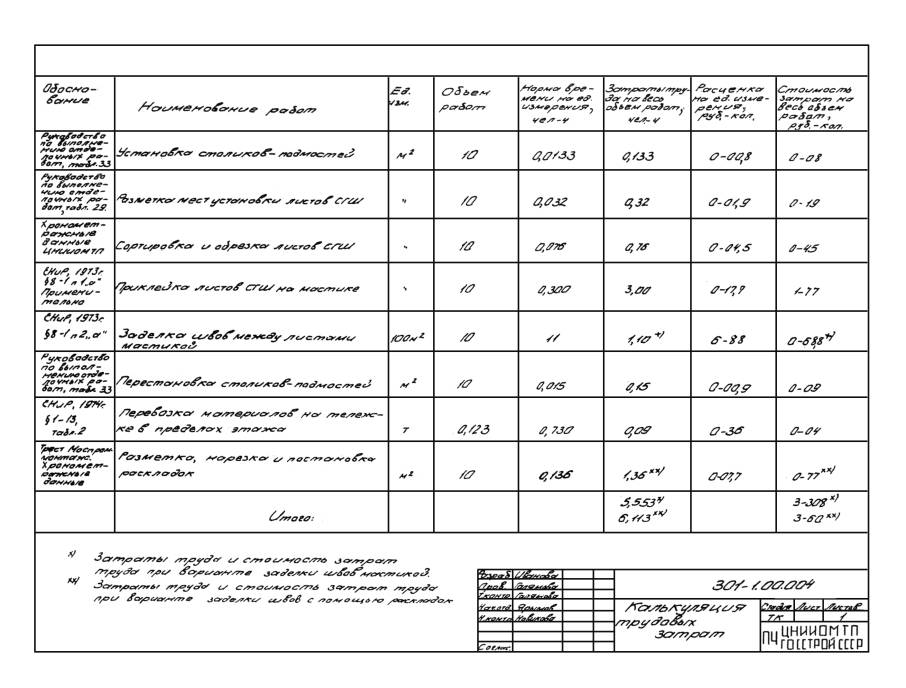 Обосно-
вание
Наименование работ
Ед.
изм.
Объем
работ
Норма вре-
мени на ед.
измерения,
чел-ч
Затраты тру-
да на весь
объем работ,
чел-ч
Расценка
на ед. изме-
рения,
руб.-коп.
Стоимость
затрат на
весь объем
работ,
руб.-коп.
Руководство
по выполне-
нию отде-
лочных ра-
бот, табл. 33
Установка столиков-подмостей
м²
10
0,0133
0,133
0-00,8
0-08
Руководство
по выполне-
нию отде-
лочных ра-
бот, табл. 29.
Разметка мест установки листов СГШ
"
10
0,032
0,32
0-01,9
0-19
Хрономет-
ражные
данные
ЦНИИОМТП
Сортировка и обрезка листов СГШ
"
10
0,076
0,76
0-04,5
0-45
СНиР, 1973г.
§8-1 п 1„а"
Примени-
тельно
Приклейка листов СГШ на мастике
"
10
0,300
3,00
0-17,7
1-77
СНиР, 1973г.
§8-1 п2„а"
Заделка швов между листами
мастикой
100м²
10
11
1,10 х)
6-88
0-68,8х)
Руководство
по выпол-
нению отде-
лочных ра-
бот, табл. 33
Перестановка столиков-подмостей
м²
10
0,015
0,15
0-00,9
0-09
СНиР, 1974г.
§1-13,
табл.2
Перевозка материалов на тележ-
ке в пределах этажа
т
0,123
0,730
0,09
0-36
0-04
Трест Моспром
монтаж.
Хрономет-
ражные
данные
Разметка, нарезка и постановка
раскладок
м²
10
0,136
1,36хх)
0-07,7
0-77хх)
Итого:
5,553х)
6,113хх)
3-308х)
3-60хх)
х) Затраты труда и стоимость затрат
труда при варианте заделки швов мастикой.
хх) Затраты труда и стоимость затрат труда
при варианте заделки швов с помощью раскладок
Разраб Иванова
Пров.
Т.контр
Н.контр Новикова
Соглас.
301-1.00.004
Калькуляция
трудовых
затрат
Стадия Лист Листов
ТК 1
ПЧ ЦНИИОМТП
ГОССТРОЙ СССР